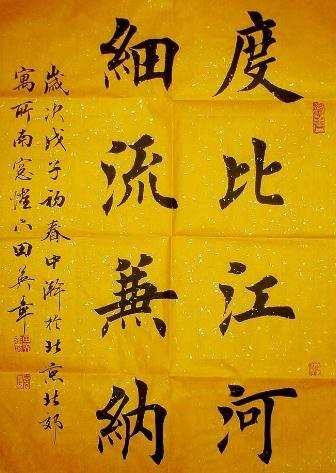 度比江河
细流兼纳
岁次戊子初春中浣于北京北郊
寓所南窗灯下田英章